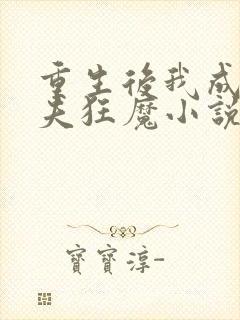 重生後我成
夫狂魔小說
寶寶淳-